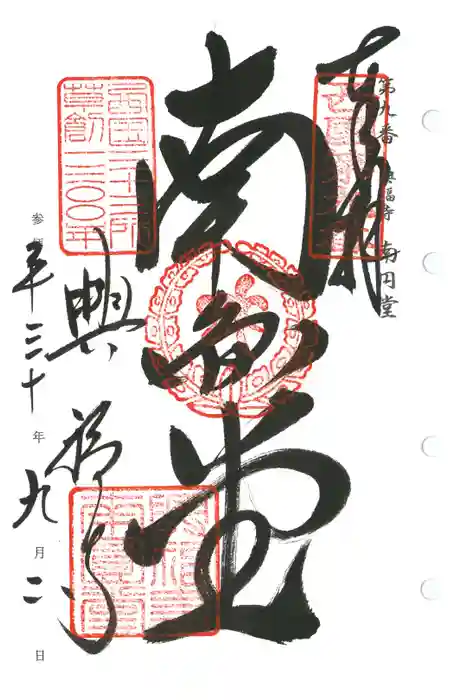 奉拝
第九番 興福寺 南円堂
南円堂
西国三十三所
草創一三〇〇年
興福寺
参拝 平三十年九月二日